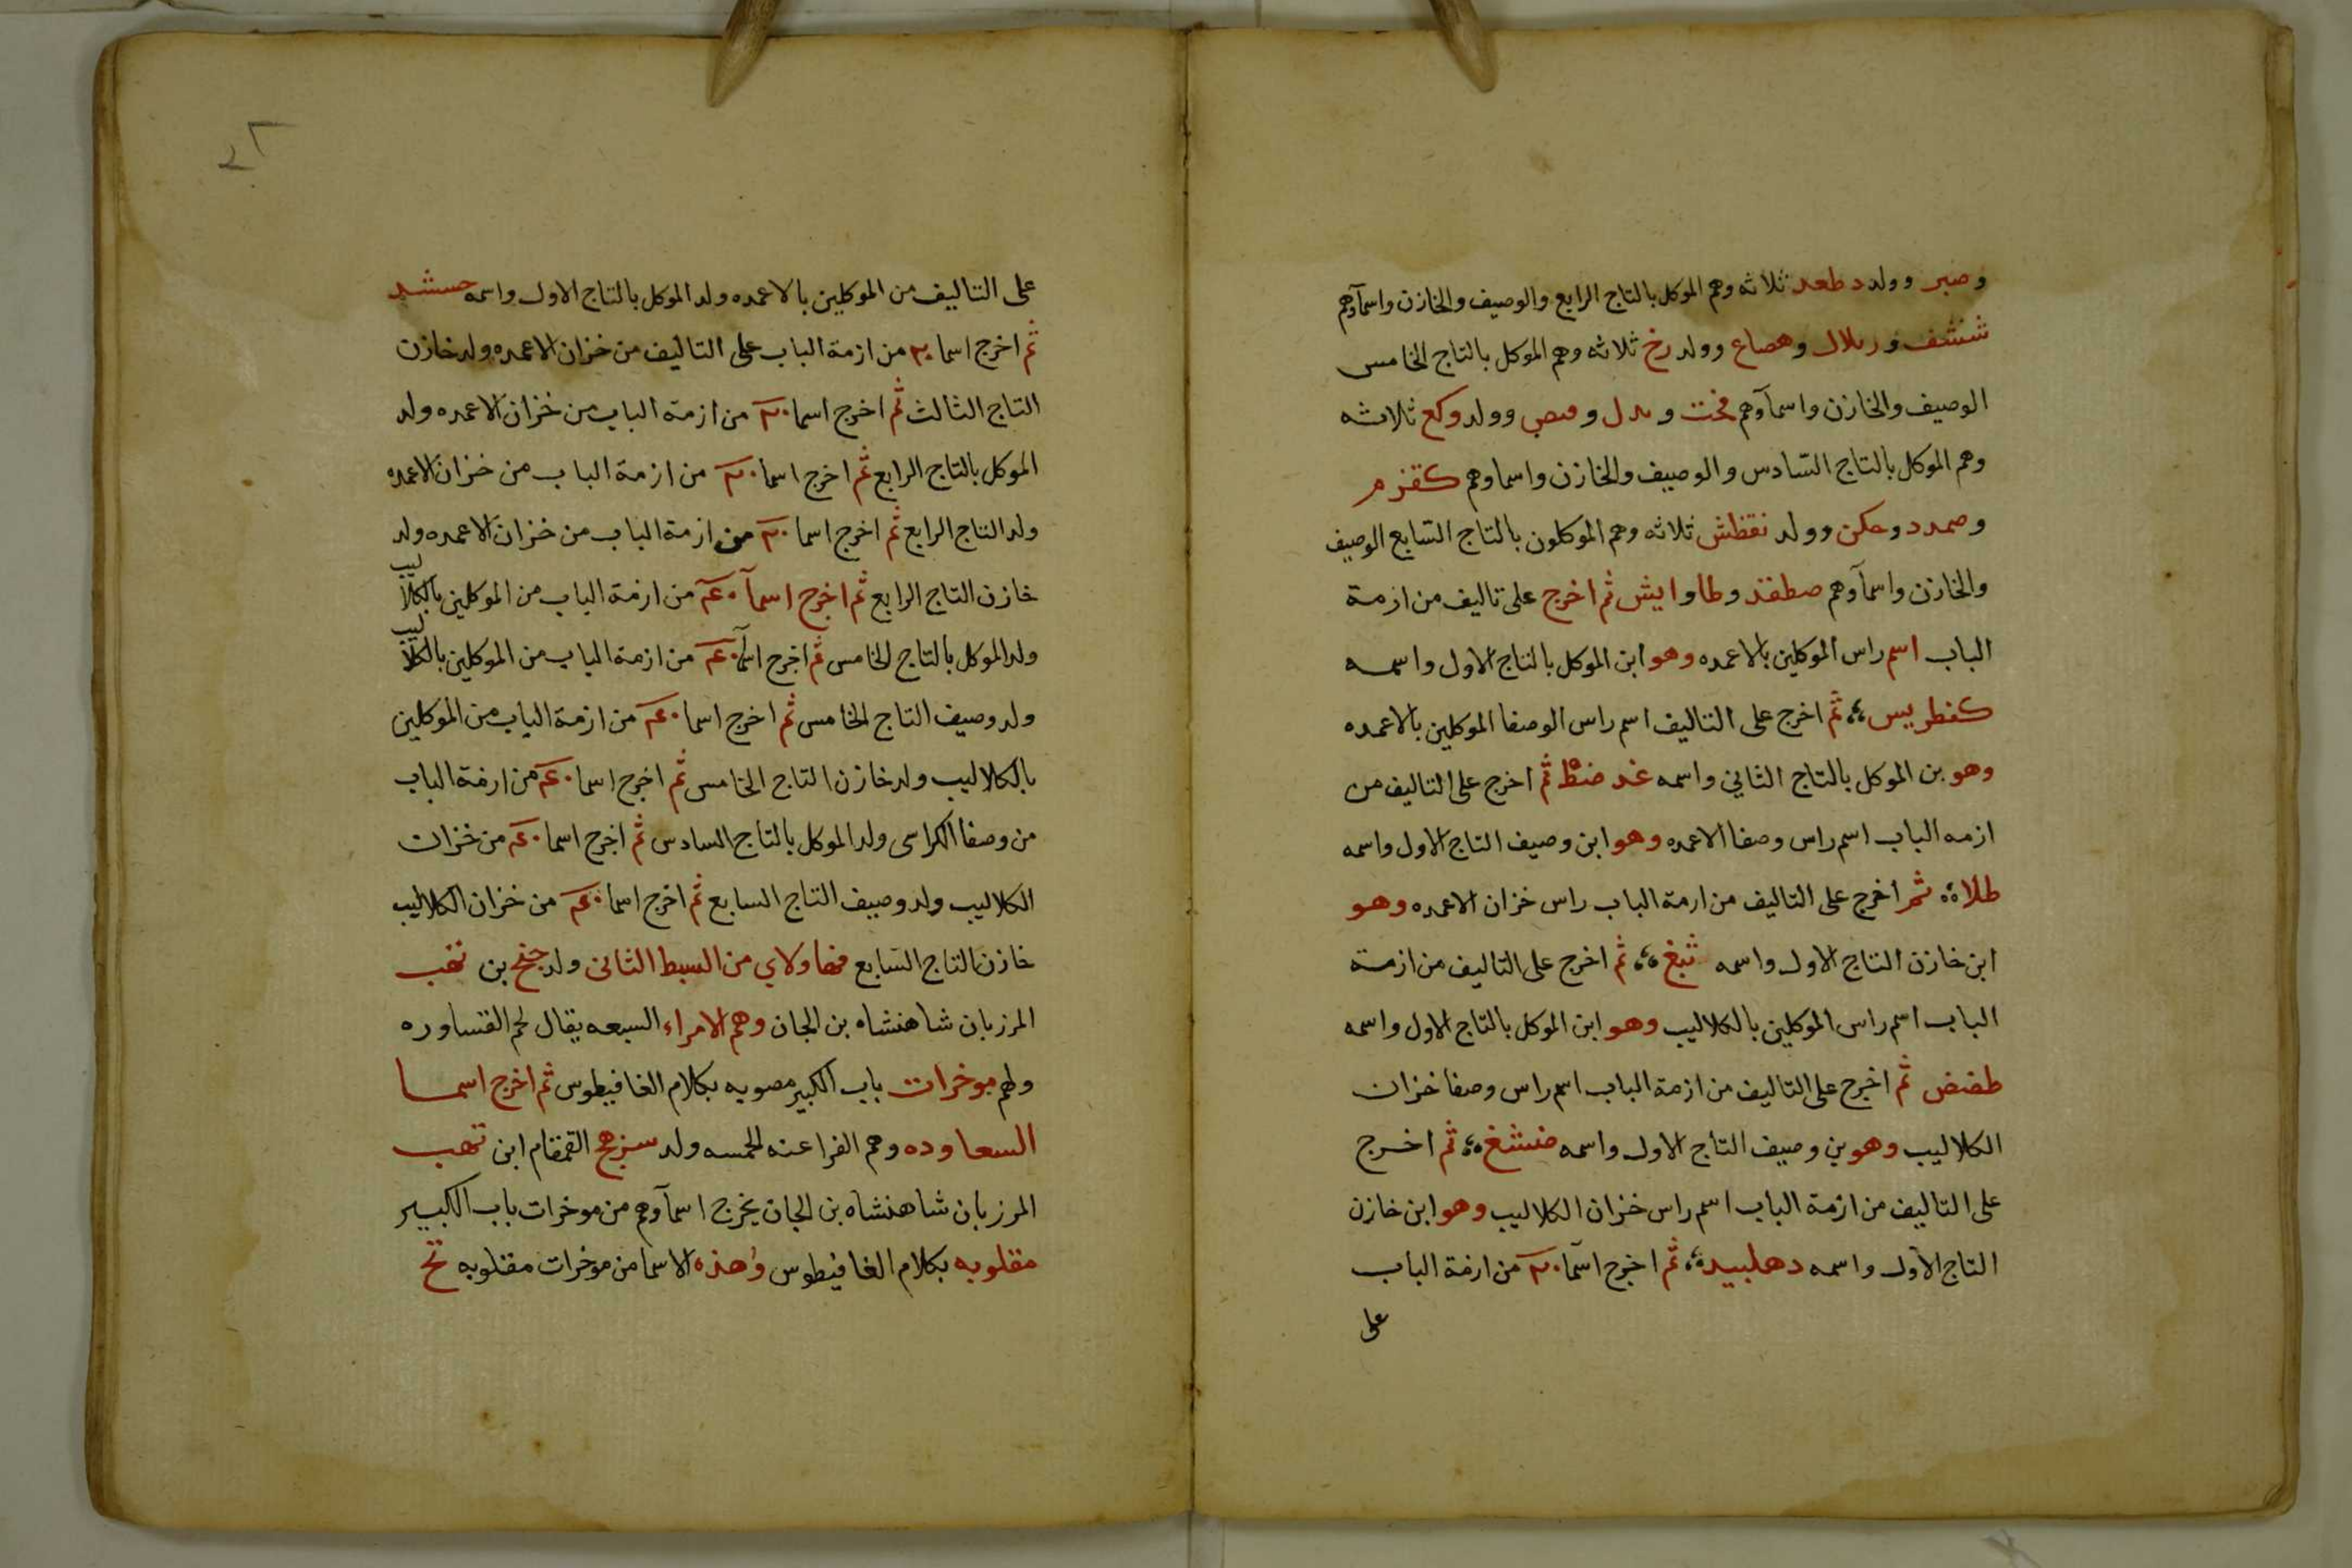 وصبر وولد دطعد ثلاثه وهم الموكل بالتاج الرابع والوصيف والخازن واسمآوهم
شنشف وربلال وهصاع وولد رخ ثلاثه وهم الموكل بالتاج الخامس
الوصيف والخازن واسمآوهم وولد وكع ثلاثه
وهم الموكل بالتاج السّادس والوصيف والخازن واسماوهم كقزم
وصمدد وحكن وولد نقظش ثلاثه وهم الموكلون بالتاج السّابع الوصيف
والخازن واسمآوهم صطقذ وطا وايش ثم اخرج على تاليف من ازمة
الباب اسم راس الموكلين بالاعمده وهو ابن الموكل بالتاج الاول واسمه
كفطريس ثم اخرج على التاليف اسم راس الوصفا الموكلين بالاعمده
وهو بن الموكل بالتاج الثاني واسمه غد ضظ ثم اخرج على التاليف من
ازمه الباب اسم راس وصفا الاعمده وهو ابن وصيف التاج الاول واسمه
طلاه ثم اخرج على التاليف من ازمة الباب راس خزان الاعمده وهو
ابن خازن التاج الاول واسمه ثبغ ثم اخرج على التاليف من ازمة
الباب اسم راس الموكلين بالكلاليب وهو ابن الموكل بالتاج الاول واسمه
طضض ثم اخرج على التاليف من ازمة الباب اسم راس وصفا خزان
الكلاليب وهو بن وصيف التاج الاول واسمه ضشغ ثم اخرج
على التاليف من ازمة الباب اسم راس خزان الكلاليب وهو ابن خازن
التاج الاول واسمه دهلبيد ثم اخرج اسمآ من ازمة الباب
على
على التاليف من الموكلين بالاعمده ولد الموكل بالتاج الاول واسمه حسشد
ثم اخرج اسما من ازمة الباب على التاليف من خزان الاعمده ولد خازن
التاج الثالث ثم اخرج اسما من ازمة الباب من خزان الاعمده ولد
الموكل بالتاج الرابع ثم اخرج اسما من ازمة الباب من خزان الاعمده
ولد التاج الرابع ثم اخرج اسما من ازمة الباب من خزان الاعمده ولد
خازن التاج الرابع ثم اخرج اسمآ من ازمة الباب من الموكلين بالكلاليب
ولد الموكل بالتاج الخامس ثم اخرج اسمآ من ازمة الباب من الموكلين بالكلاليب
ولد وصيف التاج الخامس ثم اخرج اسما من ازمة الباب من الموكلين
بالكلاليب ولد خازن التاج الخامس ثم اخرج اسما من ازمة الباب
من وصفا الكراسى ولد الموكل بالتاج السادس ثم اخرج اسما من خزان
الكلاليب ولد وصيف التاج السابع ثم اخرج اسما من خزان الكلاليب
خازن التاج السّابع فهاولاي من السبط الثانى ولد جنح بن تهب
المرزبان شاهنشاه بن الجان وهم الامراء السبعه يقال لهم القساوره
ولهم موخرات باب الكبير مصوبه بكلام الغافيطوس ثم اخرج اسما
السعاوده وهم الفراعنه الخمسه ولد سنرهج القمقام ابن تهب
المرزبان شاهنشاه بن الجان يخرج اسمآوهم من موخرات باب الكبير
مقلوبه بكلام الغافيطوس وهذه الاسما من موخرات مقلوبه تخ